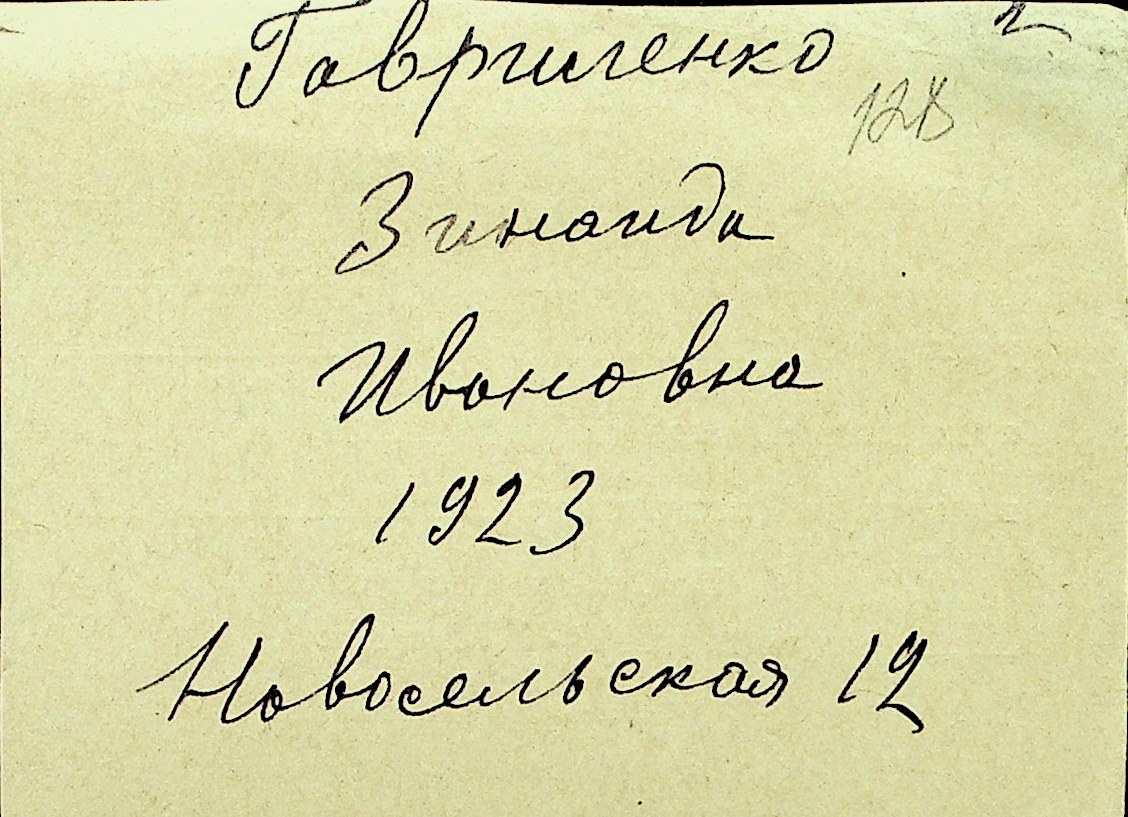 Гавриленко
128
Зинаида
Ивановна
1923
Новосельская 12